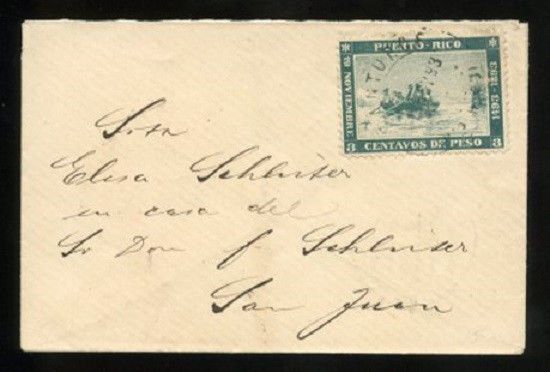 PUERTO-RICO
19 NOVIEMBRE
1493-1893
3 CENTAVOS DE PESO 3
Srta
Elisa Schluter
en casa del
Sr Don f Schluter
San Juan